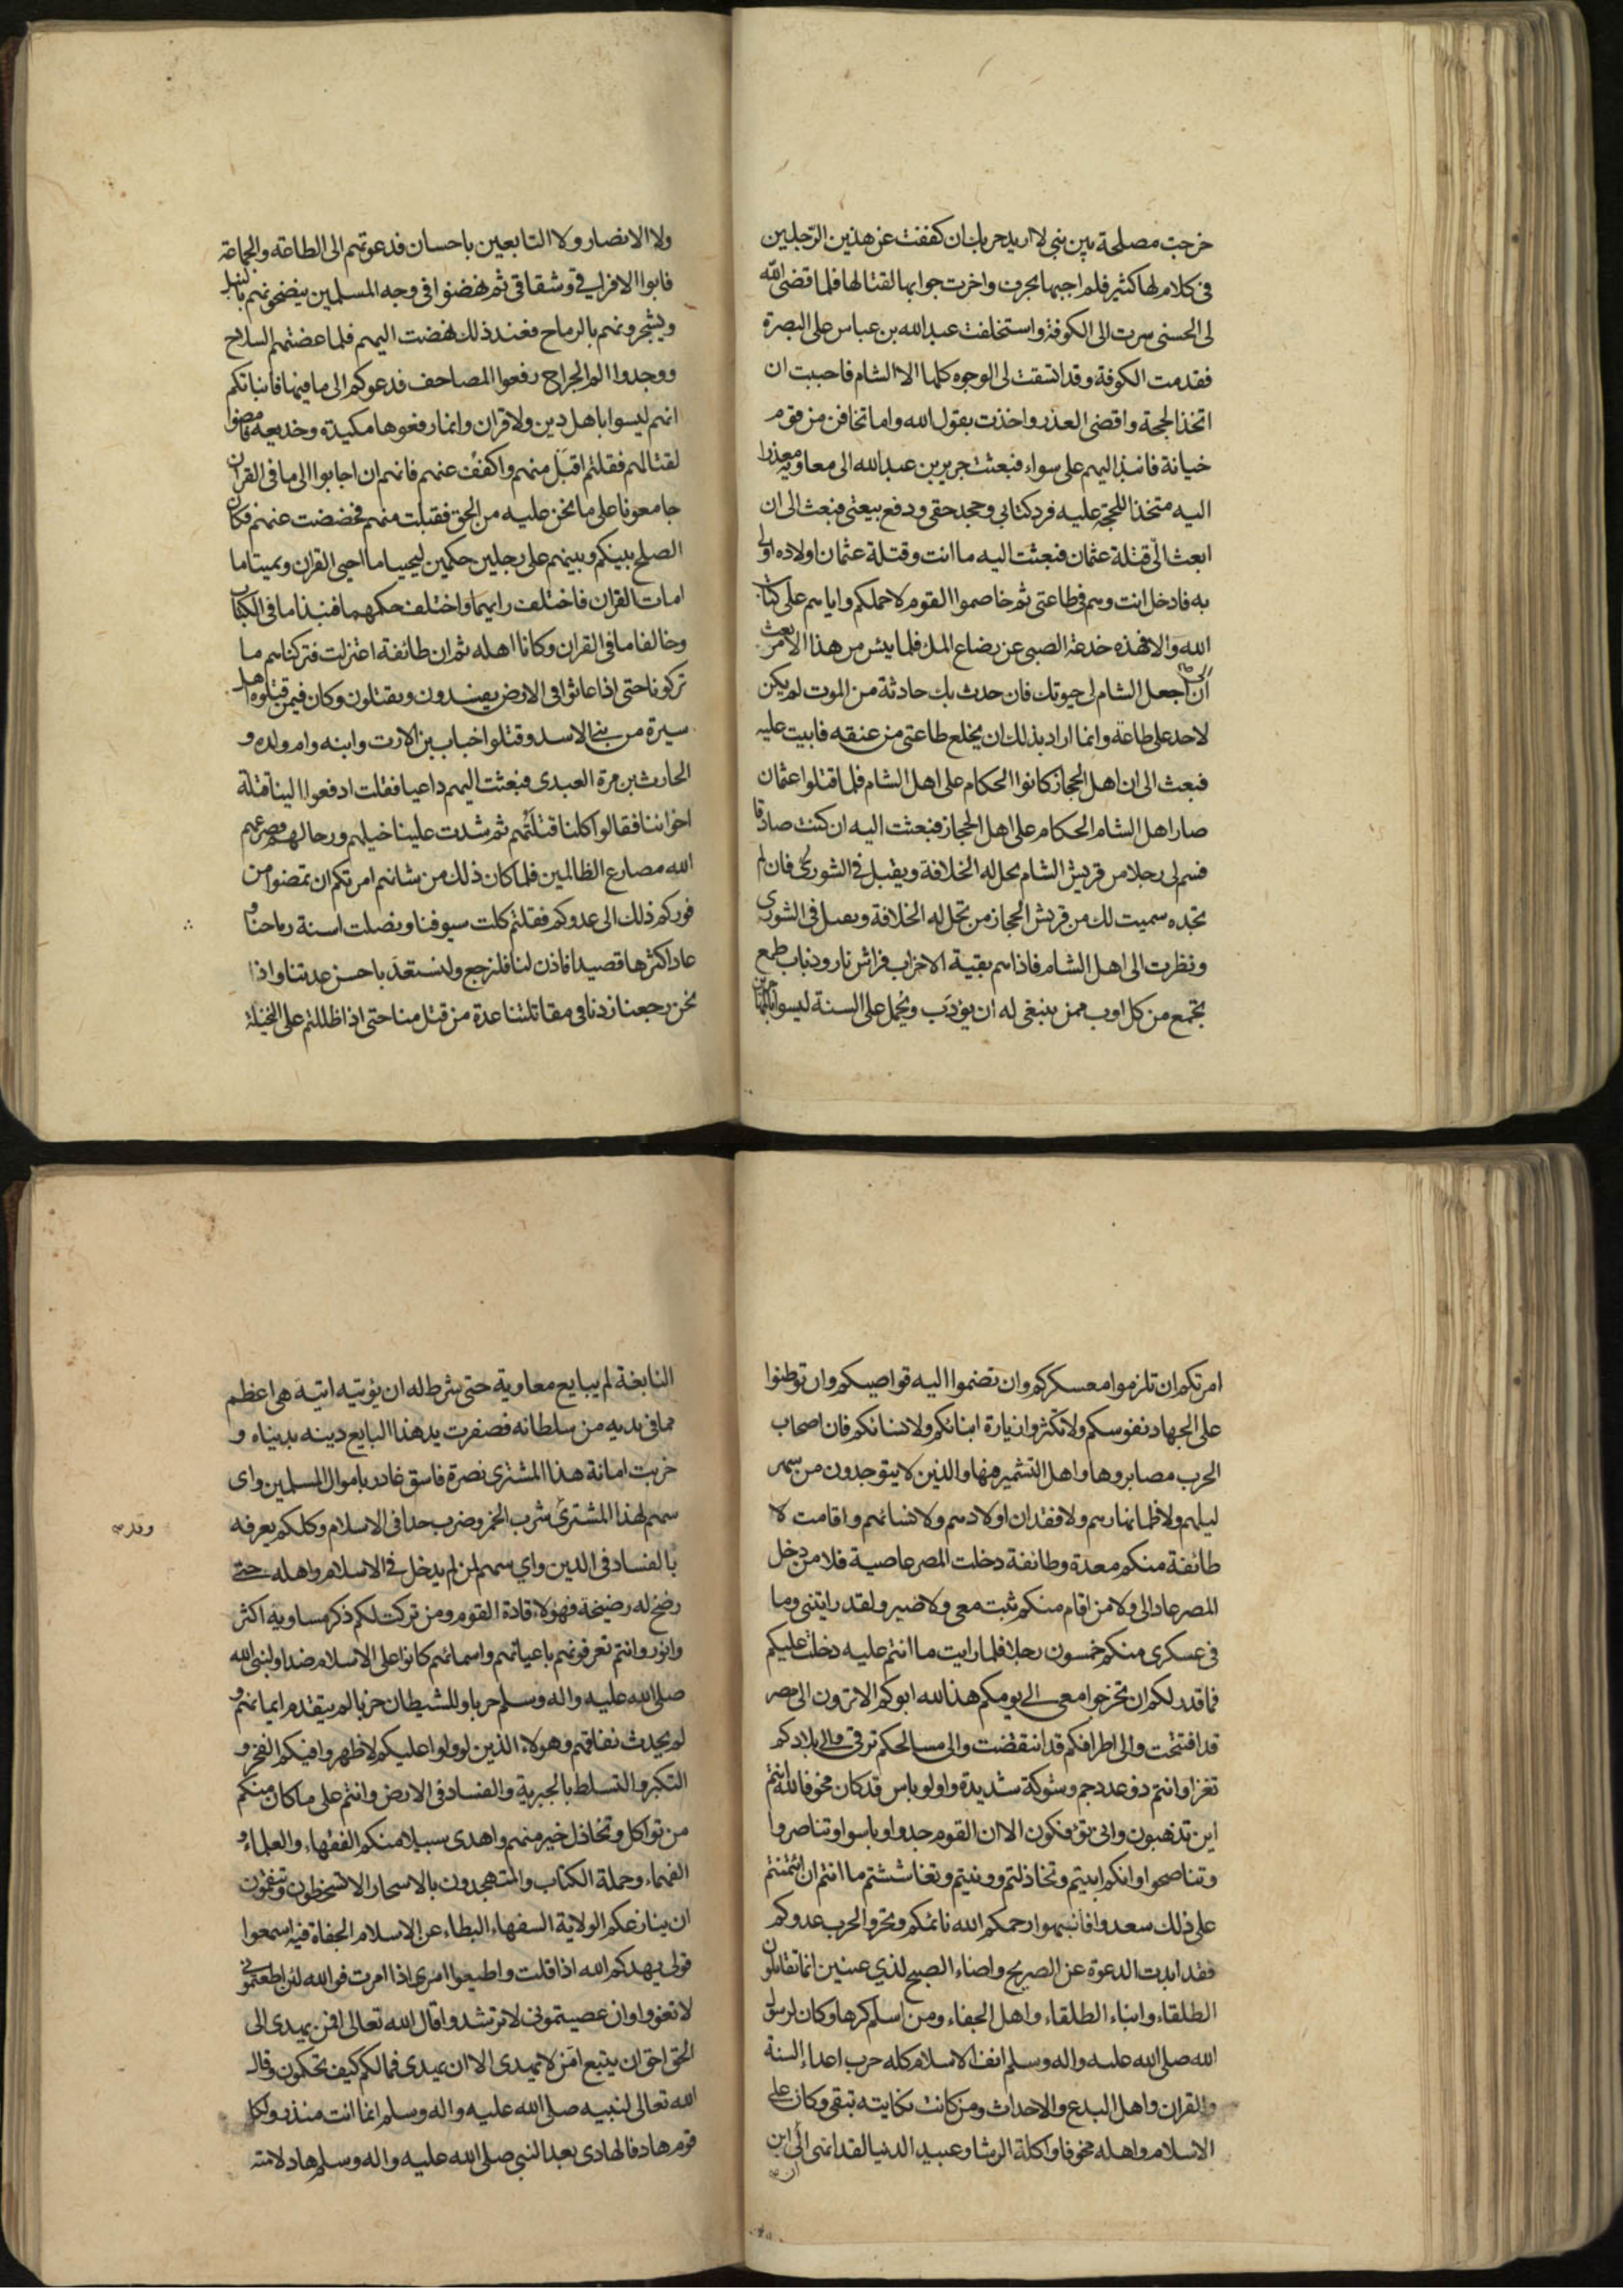 خرجت مصلحة بين بني لا اريد حربك ان كففت عن هذين الرجلين
في كلام لها كثير فلم اجبها بحرف واخرت جوابها لقتالها فلما قضى الله
لى الحسنى سرت الى الكوفة واستخلفت عبد الله بن عباس على البصرة
فقدمت الكوفة وقد اتسقت لى الوجوه كلها الا الشام فاحببت ان
اتخذ الحجة واقضى العذر واخذت بقول الله واما تخافن من قوم
خيانة فانبذ اليهم على سواء فبعثت جرير بن عبد الله الى معاوية معذرا
اليه متخذا للحجة عليه فرد كتابي وجحد حقى ودفع بيعتى فبعث الى ان
ابعث الى قتلة عثمان فبعثت اليه ما انت وقتلة عثمان اولاده اولى
به فادخل انت وهم في طاعتى ثم خاصموا القوم لاحملكم واياهم على كتاب
الله والا فهذه خدعة الصبى عن رضاع الملى فلما يئس من هذا الامر بعث
الى ان اجعل الشام لى حيوتك فان حدث بك حادثة من الموت لم يكن
لاحد على طاعة وانما اراد بذلك ان يخلع طاعتى من عنقه فابيت عليه
فبعث الى ان اهل الحجاز كانوا الحكام على اهل الشام فلما قتلوا عثمان
صار اهل الشام الحكام على اهل الحجاز فبعثت اليه ان كنت صادقا
فسم لى رجلا من قريش الشام يحل له الخلافة ويقبل في الشورى فان لم
تجده سميت لك من قريش الحجاز من تحل له الخلافة ويقبل في الشورى
ونظرت الى اهل الشام فاذا هم بقية الاحزاب فراش نار وذباب طمع
تجمع من كل اوب ممن ينبغى له ان يؤدب ويحمل على السنة ليسوا بالمهاجرين
ولا الانصار ولا التابعين باحسان فدعوتهم الى الطاعة والجماعة
فابوا الا فراقي وشقاقى ثم نهضوا في وجه المسلمين ينضحونهم بالنبل
ويشجرونهم بالرماح فعند ذلك نهضت اليهم فلما عضتهم السلاح
ووجدوا الم الجراح رفعوا المصاحف فدعوكم الى ما فيها فانباتكم
انهم ليسوا باهل دين ولا قران وانما رفعوها مكيدة وخديعة فامضوا
لقتالهم فقلتم اقبل منهم واكفف عنهم فانهم ان اجابوا الى ما في القران
جامعونا على ما نحن عليه من الحق فقبلت منهم فخضضت عنهم فكان
الصلح بينكم وبينهم على رجلين حكمين ليحييا ما احيى القران ويميتا ما
امات القران فاختلف رايهما واختلف حكمهما فنبذا ما في الكتاب
وخالفا ما في القران وكانا اهله ثم ان طائفة اعتزلت فتركناهم ما
تركونا حتى اذا عاثوا في الارض يفسدون ويقتلون وكان فيمن قتلوه اهل
سيرة من بني الاسد وقتلوا خباب بن الارت وابنه وام ولده و
الحارث بن مرة العبدى فبعثت اليهم داعيا فقلت ادفعوا الينا قتلة
اخواننا فقالوا كلنا قتلتهم ثم شدت علينا خيلهم ورجالهم فصرعهم
الله مصارع الظالمين فلما كان ذلك من شانهم امرتكم ان تمضوا من
فوركم ذلك الى عدوكم فقلتم كلت سيوفنا ونصلت اسنة رماحنا و
عاد اكثرها قصيدا فاذن لنا فلنرجع ولنستعد باحسن عدتنا واذا
نحن رجعنا زدنا في مقاتلتنا عدة من قتل منا حتى اذا ظللتم على النخيلة
امرتكم ان تلزموا معسكركم وان تضموا اليه قواصيكم وان توطنوا
على الجهاد نفوسكم ولا تكثروا زيارة ابنائكم ولا نسائكم فان اصحاب
الحرب مصابروها واهل التشمير فيها والذين لا يتوجدون من سهر
ليلهم ولا ظما نهارهم ولا فقدان اولادهم ولا نسائهم واقامت لا
طائفة منكم معدة وطائفة دخلت المصر عاصية فلا من دخل
المصر عاد الى ولا من اقام منكم ثبت معى ولا ضير ولقد رايتنى وما
في عسكرى منكم خمسون رجلا فلما رايت ما انتم عليه دخلت عليكم
فما قدر لكم ان تخرجوا معى الى يومكم هذا لله ابوكم الا ترون الى مصر
قد افتتحت والى اطرافكم قد انتقضت والى مسالحكم ترقى والى بلادكم
تغزا وانتم ذو عدد جم وشوكة شديدة واولو باس قد كان مخوفا لله انتم
اين تذهبون وانى تؤفكون الا ان القوم جدوا وباسوا وتناصروا
وتناصحوا وانكم ابيتم وتخاذلتم وونيتم وتغاششتم ما انتم ان ائتمنتم
على ذلك سعدوا فانبهوا رحمكم الله نائمكم وتحروا لحرب عدوكم
فقد ابدت الدعوة عن الصريح واضاء الصبح لذي عينين انما تقاتلون
الطلقاء وابناء الطلقاء واهل الجفاء ومن اسلم كرها وكان لرسول
الله صلى الله عليه واله وسلم انف الاسلام كله حرب اعداء السنة
والقران واهل البدع والاحداث ومن كانت نكايته تبقى وكان على
الاسلام واهله مخوفا واكلة الرشا وعبيد الدنيا لقد انتهى الى ان ابن
النابغة لم يبايع معاوية حتى شرط له ان يؤتيه اتية هى اعظم
مما في يديه من سلطانه فصفرت يد هذا البايع دينه بدنياه و
خربت امانة هذا المشترى نصرة فاسق غادر باموال المسلمين واى
سهم لهذا المشترى شرب الخمر وضرب حدا في الاسلام وكلكم يعرفه
وقد
بالفساد في الدين واي سهم لمن لم يدخل في الاسلام واهله حتى
رضخ له رضيخة فهؤلاء قادة القوم ومن تركت لكم ذكر مساويه اكثر
وانور وانتم تعرفونهم باعيانهم واسمائهم كانوا على الاسلام ضدا ولنبى الله
صلى الله عليه واله وسلم حربا وللشيطان حزبا لم يتقدم ايمانهم و
لم يحدث نفاقهم وهولاء الذين لو ولوا عليكم لاظهروا فيكم الفخر و
التكبر والتسلط بالجبرية والفساد في الارض وانتم على ما كان منكم
من تواكل وتخاذل خير منهم واهدى سبيلا منكم الفقهاء والعلماء و
الفهماء وحملة الكتاب والمتهجدون بالاسحار الا تسخطون وتنقمون
ان ينازعكم الولاية السفهاء البطاء عن الاسلام الجفاة فيه اسمعوا
قولى يهدكم الله اذا قلت واطيعوا امرى اذا امرت فوالله لئن اطعتمونى
لا تغووا وان عصيتمونى لا ترشدوا قال الله تعالى افمن يهدى الى
الحق احق ان يتبع امن لا يهدى الا ان يهدى فما لكم كيف تحكمون وقال
الله تعالى لنبيه صلى الله عليه واله وسلم انما انت منذر ولكل
قوم هاد فالهادى بعد النبي صلى الله عليه واله وسلم هاد لامته